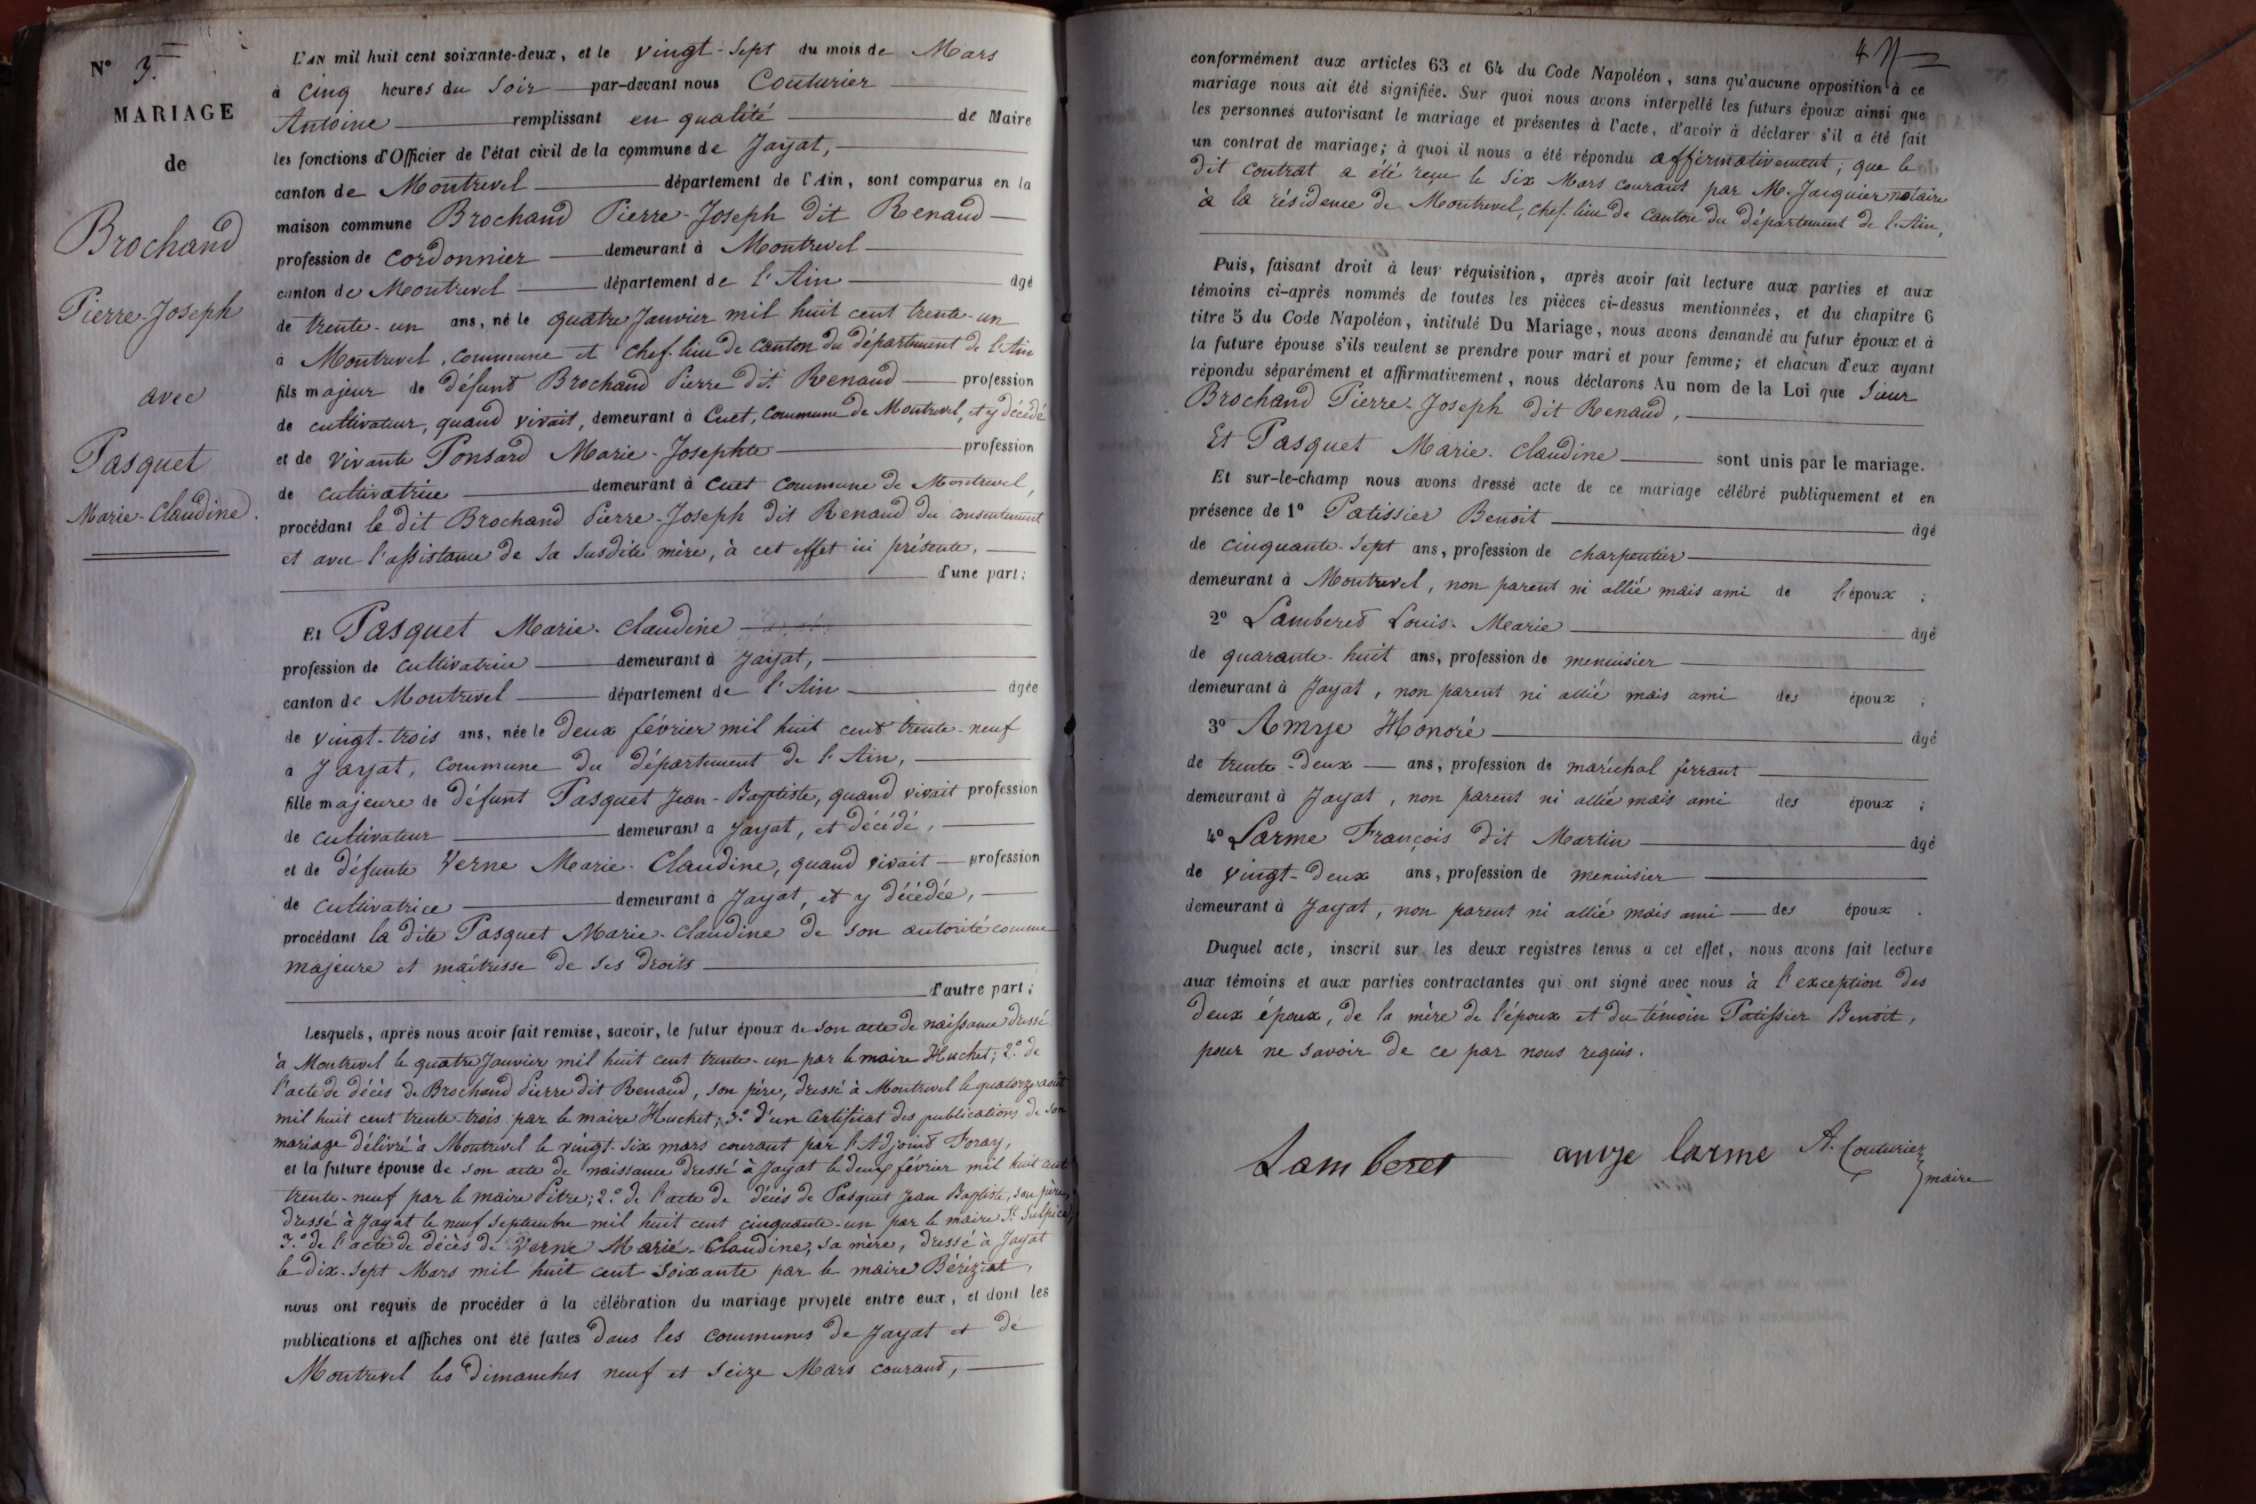 N° 3.
MARIAGE
de
Brochand
Pierre-Joseph
avec
Pasquet
Marie-Claudine.
L'AN mil huit cent soixante-deux, et le vingt-sept du mois de Mars
à cinq heures du soir par-devant nous Couturier
Antoine remplissant en qualité de Maire
les fonctions d'Officier de l'état civil de la commune de Jayat,
canton de Montrevel département de l'Ain, sont comparus en la
maison commune Brochand Pierre-Joseph dit Renaud
profession de cordonnier demeurant à Montrevel
canton de Montrevel département de l'Ain âgé
de trente-un ans, né le quatre Janvier mil huit cent trente-un
à Montrevel, commune et chef-lieu de canton du département de l'Ain
fils majeur de défunt Brochand Pierre dit Renaud profession
de cultivateur, quand vivait, demeurant à Cuet, commune de Montrevel, et y décédé
et de vivante Ponsard Marie-Josephte profession
de cultivatrice demeurant à Cuet commune de Montrevel,
procédant le dit Brochand Pierre-Joseph dit Renaud du consentement
et avec l'assistance de sa susdite mère, à cet effet ici présente,
d'une part;
Et Pasquet Marie-Claudine
profession de cultivatrice demeurant à Jayat,
canton de Montrevel département de l'Ain âgée
de vingt-trois ans, née le deux février mil huit cent trente-neuf
à Jayat, commune du département de l'Ain,
fille majeure de défunt Pasquet Jean-Baptiste, quand vivait profession
de cultivateur demeurant à Jayat, et décédé,
et de défunte Verne Marie-Claudine, quand vivait profession
de cultivatrice demeurant à Jayat, et y décédée,
procédant la dite Pasquet Marie-Claudine de son autorité comme
majeure et maîtresse de ses droits
d'autre part;
Lesquels, après nous avoir fait remise, savoir, le futur époux de son acte de naissance dressé
à Montrevel le quatre Janvier mil huit cent trente-un par le maire Huchet; 2.° de
l'acte de décès de Brochand Pierre dit Renaud, son père, dressé à Montrevel le quatorze août
mil huit cent trente-trois par le maire Huchet; 3.° d'un certificat des publications de son
mariage délivré à Montrevel le vingt-six mars courant par l'Adjoint Foray,
et la future épouse de son acte de naissance dressé à Jayat le deux février mil huit cent
trente-neuf par le maire Pitre; 2.° de l'acte de décès de Pasquet Jean Baptiste, son père,
dressé à Jayat le neuf septembre mil huit cent cinquante-un par le maire St. Sulpice,
3.° de l'acte de décès de Verne Marie-Claudine, sa mère, dressé à Jayat
le dix-sept Mars mil huit cent soixante par le maire Béréziat,
nous ont requis de procéder à la célébration du mariage projeté entre eux, et dont les
publications et affiches ont été faites dans les communes de Jayat et de
Montrevel les dimanches neuf et seize Mars courant,
4
conformément aux articles 63 et 64 du Code Napoléon, sans qu'aucune opposition à ce
mariage nous ait été signifiée. Sur quoi nous avons interpellé les futurs époux ainsi que
les personnes autorisant le mariage et présentes à l'acte, d'avoir à déclarer s'il a été fait
un contrat de mariage; à quoi il nous a été répondu affirmativement; que le
dit contrat a été reçu le six Mars courant par M. Jacquier notaire
à la résidence de Montrevel, chef-lieu de canton du département de l'Ain,
Puis, faisant droit à leur réquisition, après avoir fait lecture aux parties et aux
témoins ci-après nommés de toutes les pièces ci-dessus mentionnées, et du chapitre 6
titre 5 du Code Napoléon, intitulé Du Mariage, nous avons demandé au futur époux et à
la future épouse s'ils veulent se prendre pour mari et pour femme; et chacun d'eux ayant
répondu séparément et affirmativement, nous déclarons Au nom de la Loi que Sieur
Brochand Pierre-Joseph dit Renaud,
Et Pasquet Marie-Claudine sont unis par le mariage.
Et sur-le-champ nous avons dressé acte de ce mariage célébré publiquement et en
présence de 1° Patissier Benoit âgé
de cinquante-sept ans, profession de charpentier
demeurant à Montrevel, non parent ni allié mais ami de l'époux;
2° Lamberet Louis-Marie âgé
de quarante-huit ans, profession de menuisier
demeurant à Jayat, non parent ni allié mais ami des époux;
3° Amvje Honoré âgé
de trente-deux ans, profession de maréchal ferrant
demeurant à Jayat, non parent ni allié mais ami des époux;
4° Larme François dit Martin âgé
de vingt-deux ans, profession de menuisier
demeurant à Jayat, non parent ni allié mais ami des époux.
Duquel acte, inscrit sur les deux registres tenus à cet effet, nous avons fait lecture
aux témoins et aux parties contractantes qui ont signé avec nous à l'exception des
deux époux, de la mère de l'époux et du témoin Patissier Benoit,
pour ne savoir de ce par nous requis.
Lamberet amvje larme A. Couturier
maire